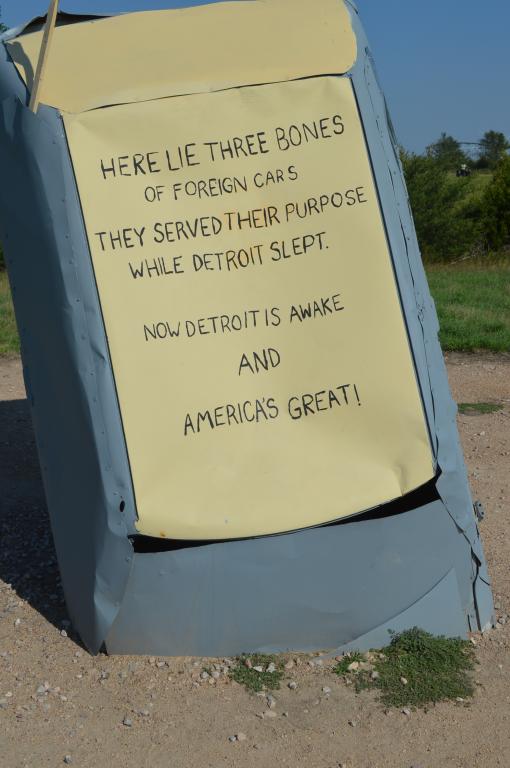 HERE LIE THREE BONES
OF FOREIGN CARS
THEY SERVED THEIR PURPOSE
WHILE DETROIT SLEPT.
NOW DETROIT IS AWAKE
AND
AMERICA'S GREAT!